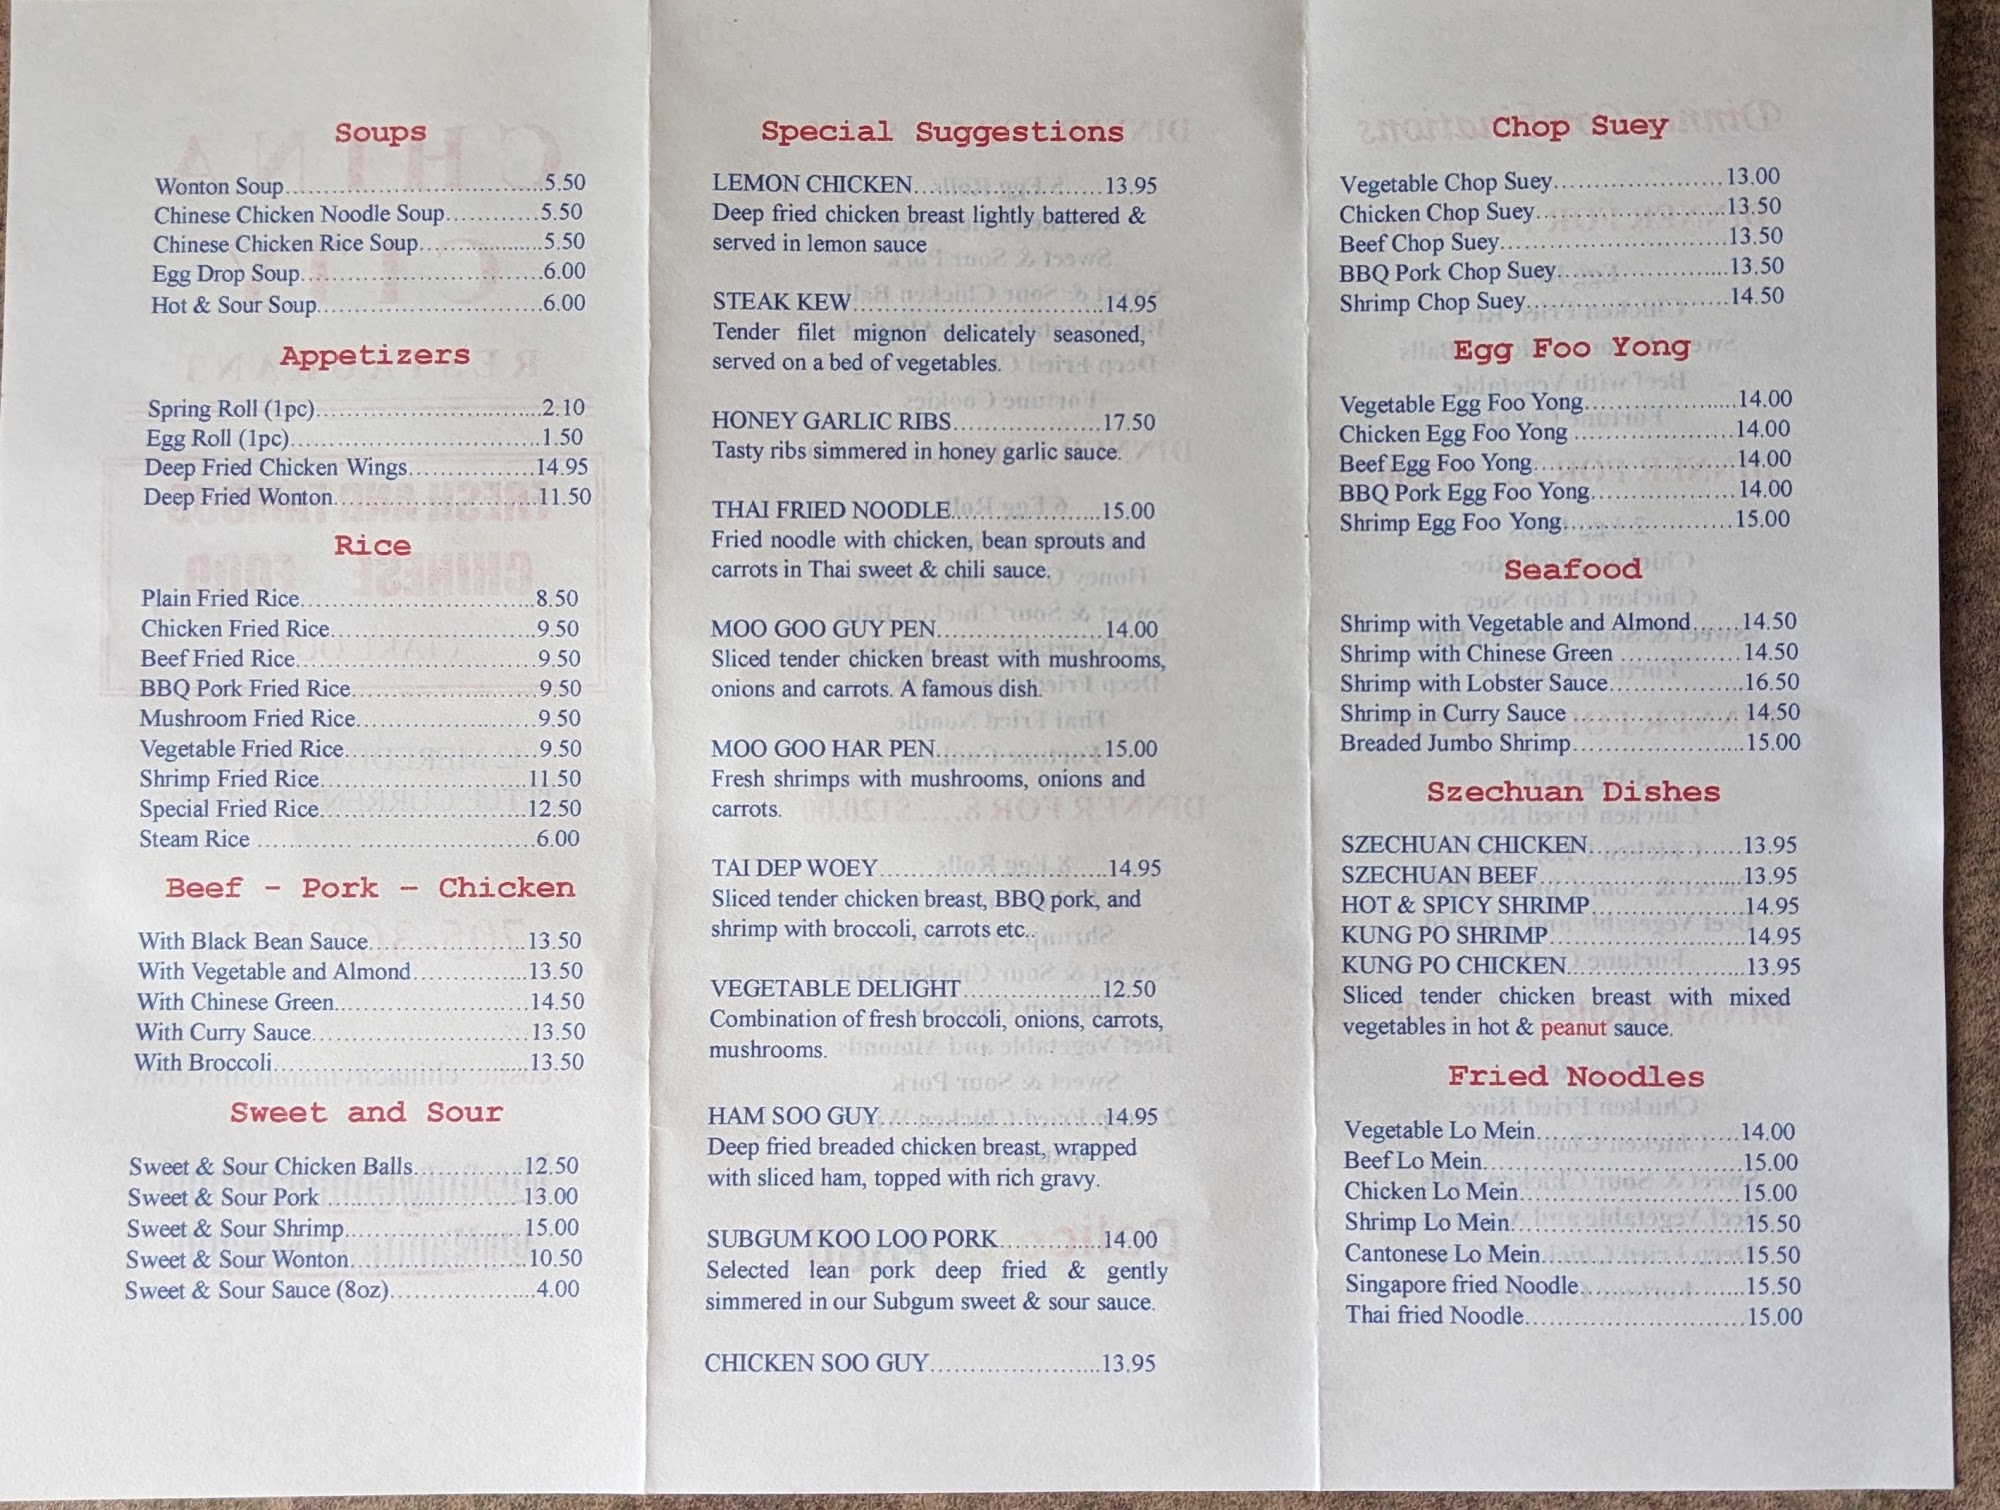 Soups
Wonton Soup.....5.50
Chinese Chicken Noodle Soup.....5.50
Chinese Chicken Rice Soup.....5.50
Egg Drop Soup.....6.00
Hot & Sour Soup.....6.00
Appetizers
Spring Roll (1pc).....2.10
Egg Roll (1pc).....1.50
Deep Fried Chicken Wings.....14.95
Deep Fried Wonton.....11.50
Rice
Plain Fried Rice.....8.50
Chicken Fried Rice.....9.50
Beef Fried Rice.....9.50
BBQ Pork Fried Rice.....9.50
Mushroom Fried Rice.....9.50
Vegetable Fried Rice.....9.50
Shrimp Fried Rice.....11.50
Special Fried Rice.....12.50
Steam Rice .....6.00
Beef - Pork - Chicken
With Black Bean Sauce.....13.50
With Vegetable and Almond.....13.50
With Chinese Green.....14.50
With Curry Sauce.....13.50
With Broccoli.....13.50
Sweet and Sour
Sweet & Sour Chicken Balls.....12.50
Sweet & Sour Pork .....13.00
Sweet & Sour Shrimp.....15.00
Sweet & Sour Wonton.....10.50
Sweet & Sour Sauce (8oz).....4.00
Special Suggestions
LEMON CHICKEN.....13.95
Deep fried chicken breast lightly battered &
served in lemon sauce
STEAK KEW.....14.95
Tender filet mignon delicately seasoned,
served on a bed of vegetables.
HONEY GARLIC RIBS.....17.50
Tasty ribs simmered in honey garlic sauce.
THAI FRIED NOODLE.....15.00
Fried noodle with chicken, bean sprouts and
carrots in Thai sweet & chili sauce.
MOO GOO GUY PEN.....14.00
Sliced tender chicken breast with mushrooms,
onions and carrots. A famous dish.
MOO GOO HAR PEN.....15.00
Fresh shrimps with mushrooms, onions and
carrots.
TAI DEP WOEY.....14.95
Sliced tender chicken breast, BBQ pork, and
shrimp with broccoli, carrots etc..
VEGETABLE DELIGHT.....12.50
Combination of fresh broccoli, onions, carrots,
mushrooms.
HAM SOO GUY.....14.95
Deep fried breaded chicken breast, wrapped
with sliced ham, topped with rich gravy.
SUBGUM KOO LOO PORK.....14.00
Selected lean pork deep fried & gently
simmered in our Subgum sweet & sour sauce.
CHICKEN SOO GUY.....13.95
Chop Suey
Vegetable Chop Suey.....13.00
Chicken Chop Suey.....13.50
Beef Chop Suey.....13.50
BBQ Pork Chop Suey.....13.50
Shrimp Chop Suey.....14.50
Egg Foo Yong
Vegetable Egg Foo Yong.....14.00
Chicken Egg Foo Yong .....14.00
Beef Egg Foo Yong.....14.00
BBQ Pork Egg Foo Yong.....14.00
Shrimp Egg Foo Yong.....15.00
Seafood
Shrimp with Vegetable and Almond.....14.50
Shrimp with Chinese Green .....14.50
Shrimp with Lobster Sauce.....16.50
Shrimp in Curry Sauce .....14.50
Breaded Jumbo Shrimp.....15.00
Szechuan Dishes
SZECHUAN CHICKEN.....13.95
SZECHUAN BEEF.....13.95
HOT & SPICY SHRIMP.....14.95
KUNG PO SHRIMP.....14.95
KUNG PO CHICKEN.....13.95
Sliced tender chicken breast with mixed
vegetables in hot & peanut sauce.
Fried Noodles
Vegetable Lo Mein.....14.00
Beef Lo Mein.....15.00
Chicken Lo Mein.....15.00
Shrimp Lo Mein.....15.50
Cantonese Lo Mein.....15.50
Singapore fried Noodle.....15.50
Thai fried Noodle.....15.00